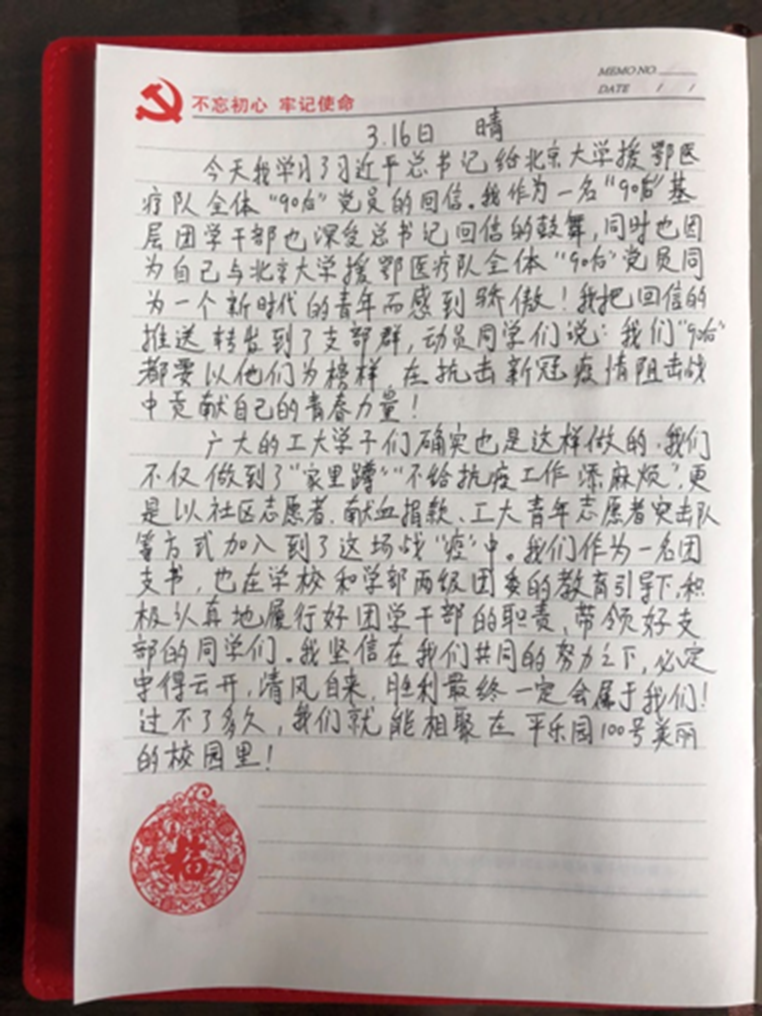 MEMO NO.
DATE / /
不忘初心 牢记使命
3.16日 晴
今天我学习了习近平总书记给北京大学援鄂医
疗队全体“90后”党员的回信。我作为一名“90后”基
层团学干部也深受总书记回信的鼓舞,同时也因
为自己与北京大学援鄂医疗队全体“90后”党员同
为一个新时代的青年而感到骄傲!我把回信的
推送转发到了支部群,动员同学们说:我们“90后”
都要以他们为榜样,在抗击新冠疫情阻击战
中贡献自己的青春力量!
广大的工大学子们确实也是这样做的,我们
不仅做到了“家里蹲”“不给抗疫工作添麻烦”,更
是以社区志愿者、献血捐款、工大青年志愿者突击队
等方式加入到了这场战“疫”中。我们作为一名团
支书,也在学校和学部两级团委的教育引导下,积
极认真地履行好团学干部的职责,带领好支
部的同学们。我坚信在我们共同的努力之下,必定
守得云开,清风自来,胜利最终一定会属于我们!
过不了多久,我们就能相聚在平乐园100号美丽
的校园里!
福